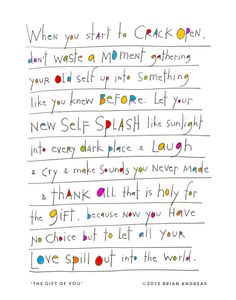 When you start to CRACK OPEN,
don't waste a MOMENT gathering
your OLD self up into something
like you knew BEFORE. Let your
NEW SELF SPLASH like sunlight
into every dark place & LAUGH
& cry & make sounds you never made
& THANK all that is holy for
the GIFT. because now you have
no choice but to let all your
Love spill out into the world.
"THE GIFT OF YOU" ©2015 BRIAN ANDREAS